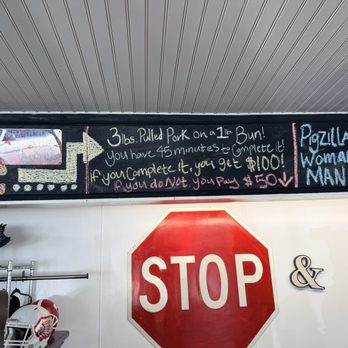 3lbs. Pulled Pork on a 1lb Bun!
You have 45 minutes to Complete it!
if you Complete it, you get $100!
if you do Not you Pay $50
Pigzilla
Woman
MAN
STOP
&